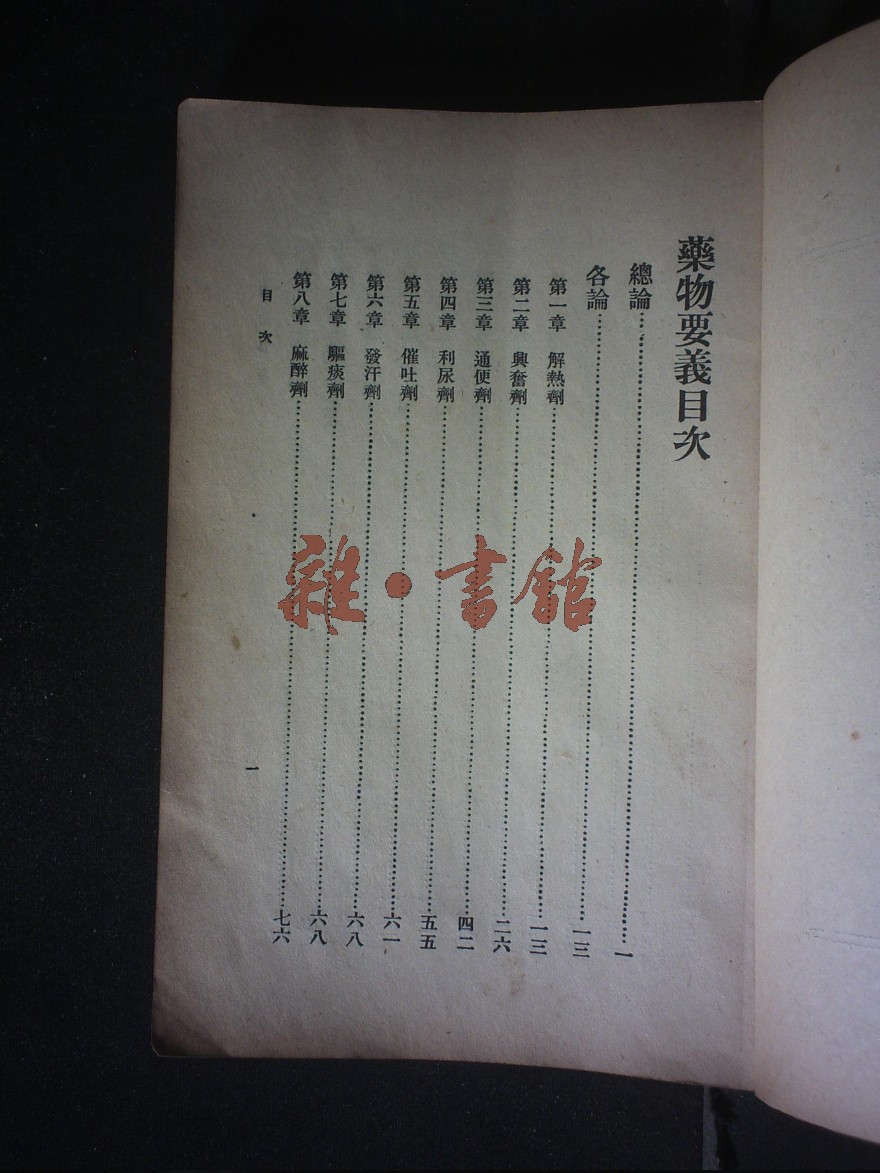 藥物要義目次
總論……一
各論……一三
第一章 解熱劑……一三
第二章 興奮劑……二六
第三章 通便劑……四二
第四章 利尿劑……五五
第五章 催吐劑……六一
第六章 發汗劑……六八
第七章 驅痰劑……六八
第八章 麻醉劑……七六
目次
一
雜·書館